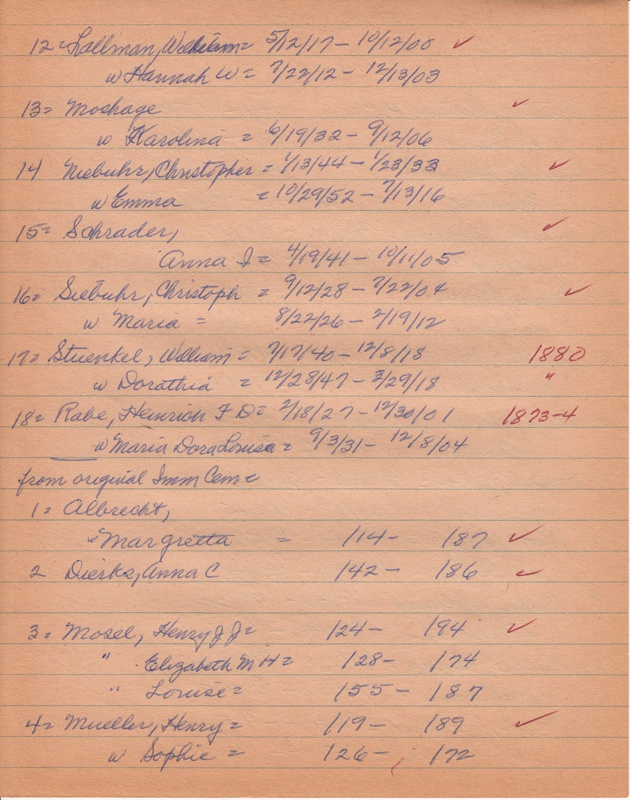 12= Lallman, William= 5/12/17 - 10/12/00 ✓
w Hannah W= 7/22/12 - 12/13/03
13= Moshage ✓
w Karolina = 6/19/32 - 9/12/06
14 Niebuhr, Christopher = 1/13/44 - 1/23/33 ✓
w Emma = 10/29/52 - 7/13/16
15= Schrader, ✓
Anna I= 4/19/41 - 10/11/05
16= Siebuhr, Christoph = 9/12/28 - 7/22/04 ✓
w Maria = 8/22/26 - 2/19/12
17= Stuenkel, William = 7/17/40 - 12/8/18 1880
w Dorathia = 12/28/47 - 3/29/18 "
18= Rabe, Heinrich F D= 2/18/27 - 12/30/01 1873-4
w Maria Dora Louisa = 9/3/31 - 12/8/04
from original Imm Cem=
1= Albrecht,
" Margretta = 114- 187 ✓
2 Dierks, Anna C 142- 186 ✓
3= Mosel, Henry J J= 124- 194 ✓
" Elizabeth M H= 128- 174
" Louise= 155- 187
4= Mueller, Henry= 119- 189 ✓
w Sophie = 126- 172